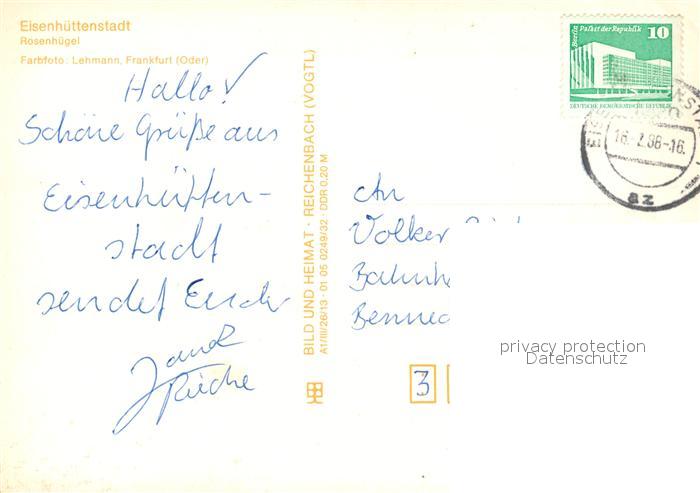 Eisenhüttenstadt
Rosenhügel
Farbfoto: Lehmann, Frankfurt (Oder)
Hallo!
Schöne Grüße aus
Eisenhütten-
stadt
sendet Euch
BILD UND HEIMAT · REICHENBACH (VOGTL)
A1/III/26/13 · 01 05 0249/32 · DDR 0,20 M
Berlin Palast der Republik 10
DEUTSCHE DEMOKRATISCHE REPUBLIK
az
An
Volker
Bahnh
Benne
3
privacy protection
Datenschutz